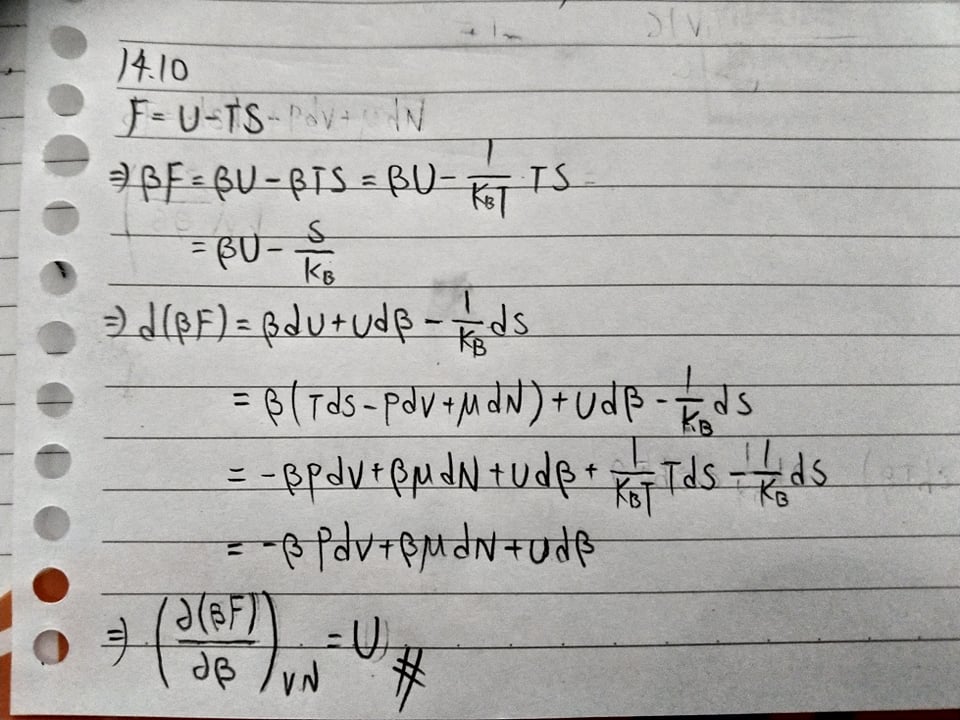 14.10
F = U - TS
⇒ βF = βU - βTS = βU - \frac{1}{K_B T} TS
= βU - \frac{S}{K_B}
⇒ d(βF) = βdU + Udβ - \frac{1}{K_B} dS
= β(TdS - PdV + μdN) + Udβ - \frac{1}{K_B} dS
= -βPdV + βμdN + Udβ + \frac{1}{K_B T} TdS - \frac{1}{K_B} dS
= -βPdV + βμdN + Udβ
⇒ \left(\frac{∂(βF)}{∂β}\right)_{VN} = U #